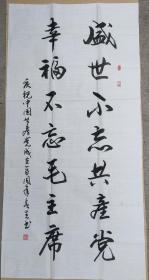 盛世不忘共產党
幸福不忘毛主席
庆祝中国共產党成立百周年